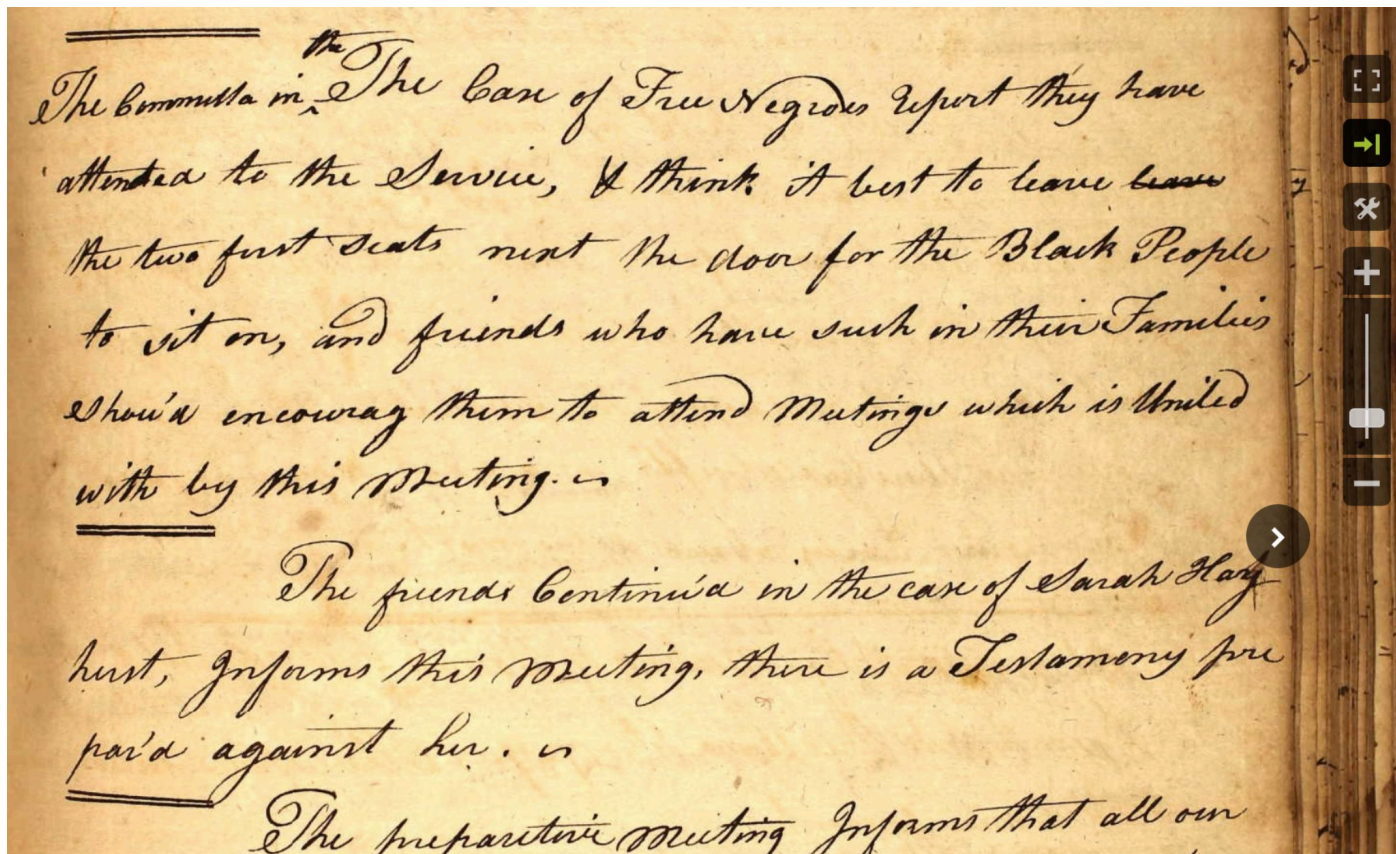 the
The Committa in ^ The Case of Free Negroes report they have
attended to the Service, & think it best to leave leave
the two first seats next the door for the Black People
to sit on, and friends who have such in their Families
shou'd encourag them to attend Meetings which is United
with by this Meeting.
The friends Continu'd in the case of Sarah Hay
hurst, Informs this Meeting, there is a Testamony pre
par'd against her.
The preparetive meeting Informs that all our